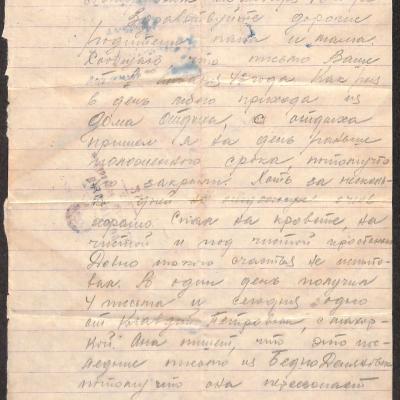 Здравствуйте дорогие
родители папа и мама.
Сообщаю что письмо Ваше
от января 42 года как раз
в день моего прихода из
дома отдыха, с отдыха
пришел я на день раньше
положенного срока, потому что
его закрыли. Хоть за несколь-
дней но
хорошо. Спал на кровате, на
чистой и под чистой простыней
Давно такого счастья не испыты-
вал. В один день получил
4 письма и сегодня одно
от Клавдии Петровны, с махор-
кой. Она пишет, что это по-
следние письмо из
потому что она переезжает